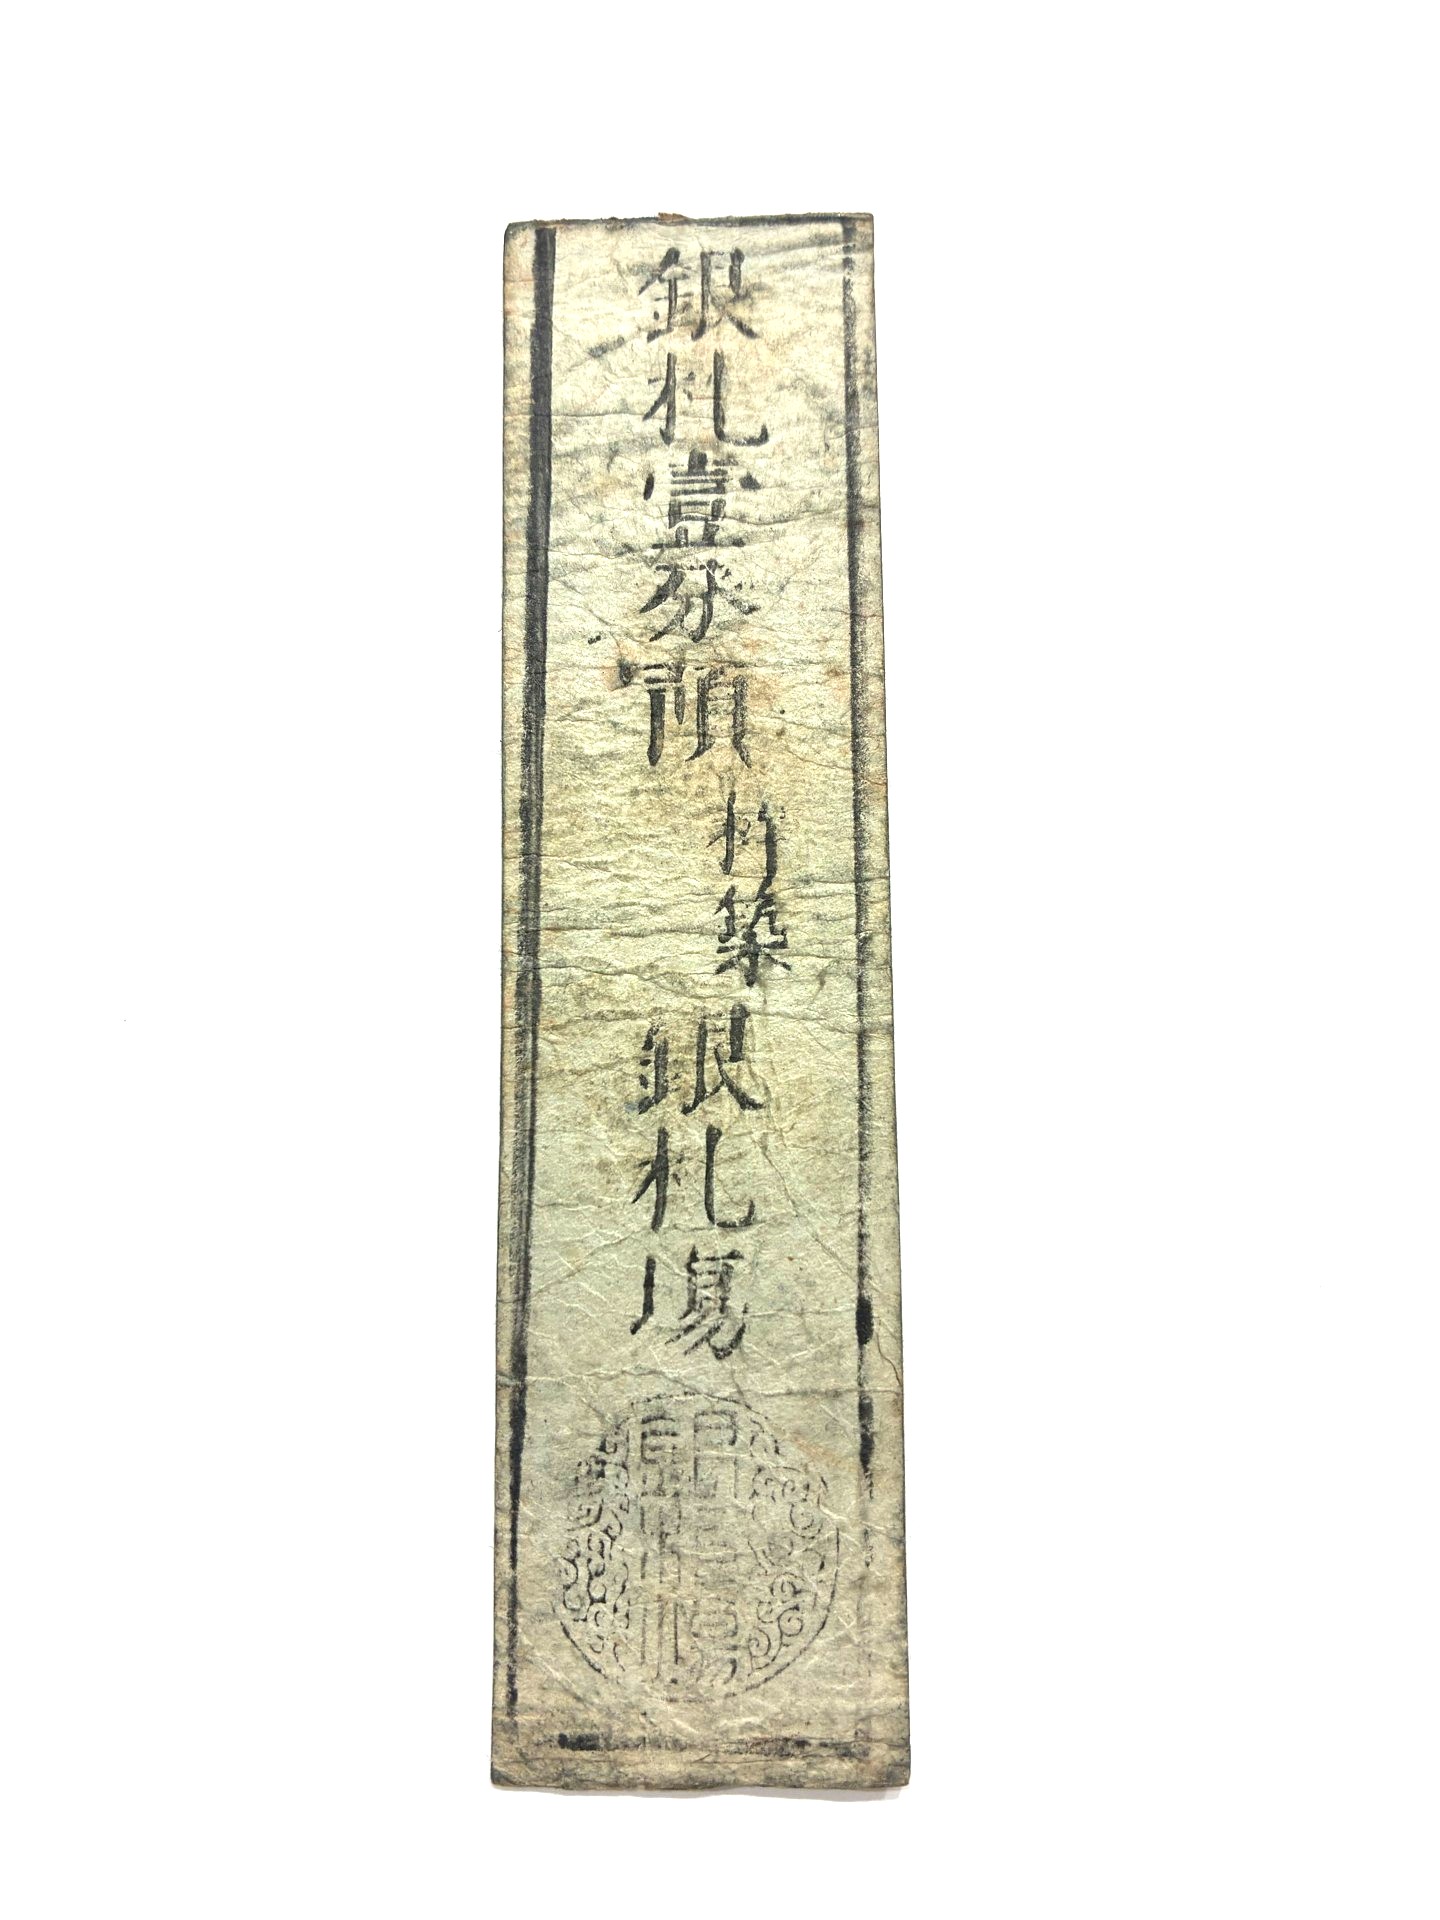 銀札壹分預
杵築
銀札場